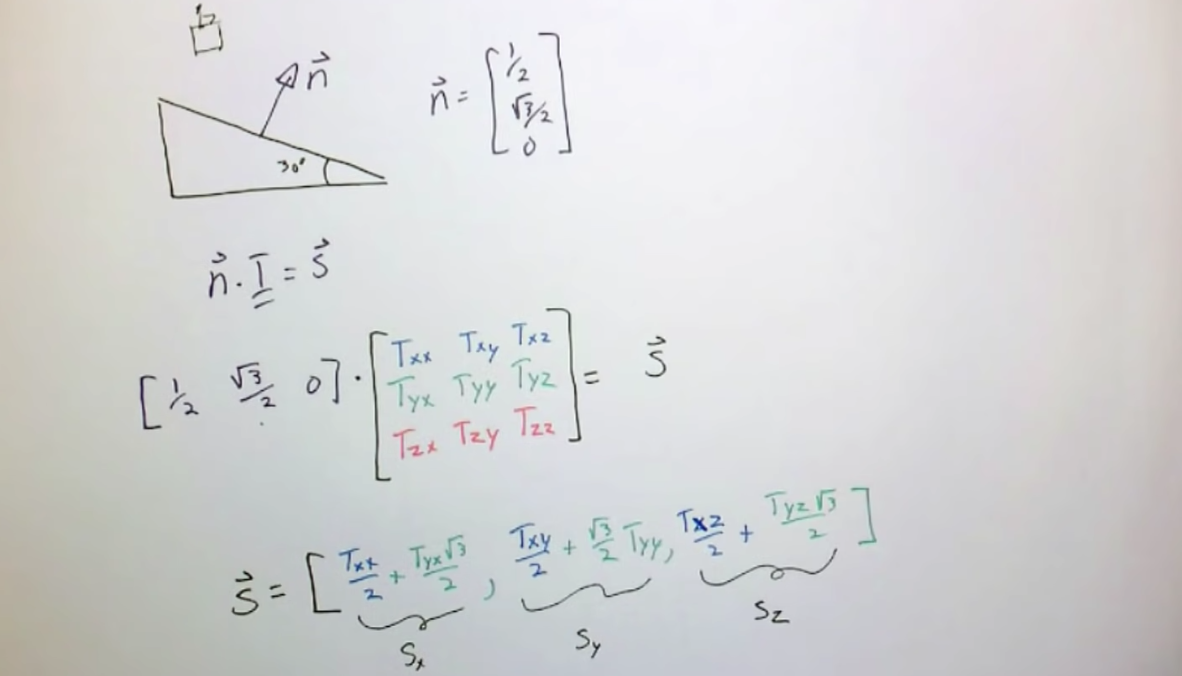 n⃗
n⃗ = [1/2 √3/2 0]
30°
n⃗ · T = s⃗
[1/2 √3/2 0] · [Txx Txy Txz
Tyx Tyy Tyz
Tzx Tzy Tzz] = s⃗
s⃗ = [Txx/2 + Tyx√3/2, Txy/2 + √3/2 Tyy, Txz/2 + Tyz√3/2]
Sx Sy Sz